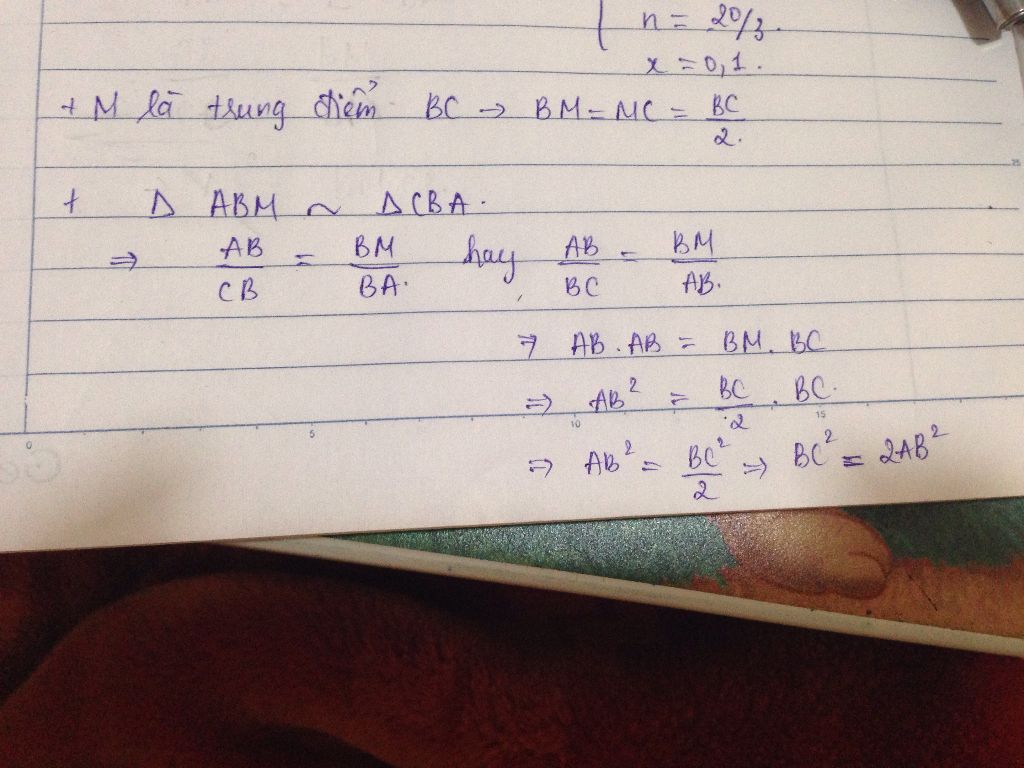 n = 20/3.
x = 0,1.
+ M là trung điểm BC → BM = MC = BC/2.
+ Δ ABM ~ Δ CBA.
⇒ AB/CB = BM/BA. hay AB/BC = BM/AB.
⇒ AB . AB = BM . BC
⇒ AB² = BC/2 . BC.
⇒ AB² = BC²/2 ⇒ BC² = 2AB²
0 5 10 15
25